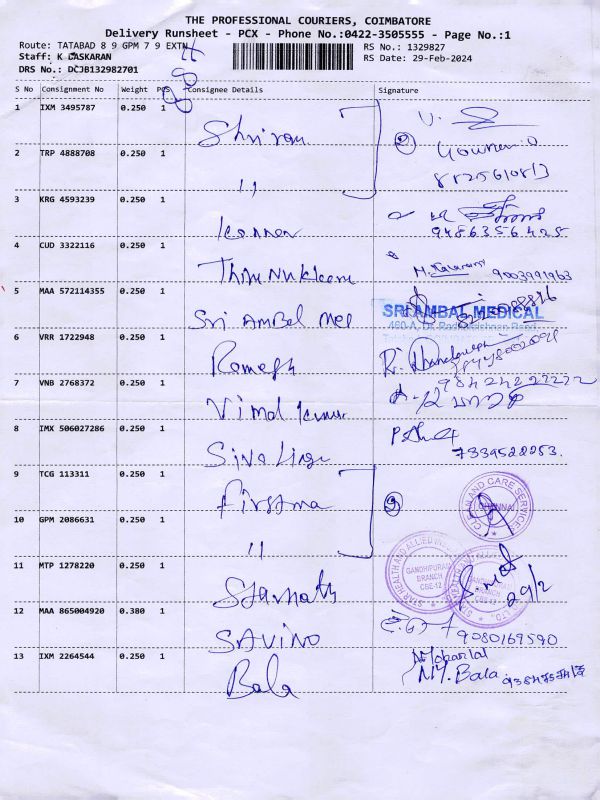 THE PROFESSIONAL COURIERS, COIMBATORE
Delivery Runsheet - PCX - Phone No.:0422-3505555 - Page No.:1
Route: TATABAD 8 9 GPM 7 9 EXTN
RS No.: 1329827
Staff: K BASKARAN
RS Date: 29-Feb-2024
DRS No.: DCJB132982701
S No Consignment No Weight PCS Consignee Details Signature
1 IXM 3495787 0.250 1 Shriram
2 TRP 4888708 0.250 1 11
3 KRG 4593239 0.250 1 Kannan
9486356425
4 CUD 3322116 0.250 1
9003991963
5 MAA 572114355 0.250 1 Sri Ambel Med
SRI AMBAL MEDICAL
460-A, Dr. Radhakrishnan Road
6 VRR 1722948 0.250 1 Ramesh
7 VNB 2768372 0.250 1 Vimal Kumar
8 IMX 506027286 0.250 1 Siva Linga
7339528253.
9 TCG 113311 0.250 1 Firstma
CLEAN AND CARE SERVICES
CHENNAI
10 GPM 2086631 0.250 1 11
11 MTP 1278220 0.250 1 Starhealth
STAR HEALTH AND ALLIED
GANDHIPURAM
BRANCH
CBE-12
29/2
12 MAA 865004920 0.380 1 SAVINO
9080169590
13 IXM 2264544 0.250 1 Bala
Mohanlal
M. Bala